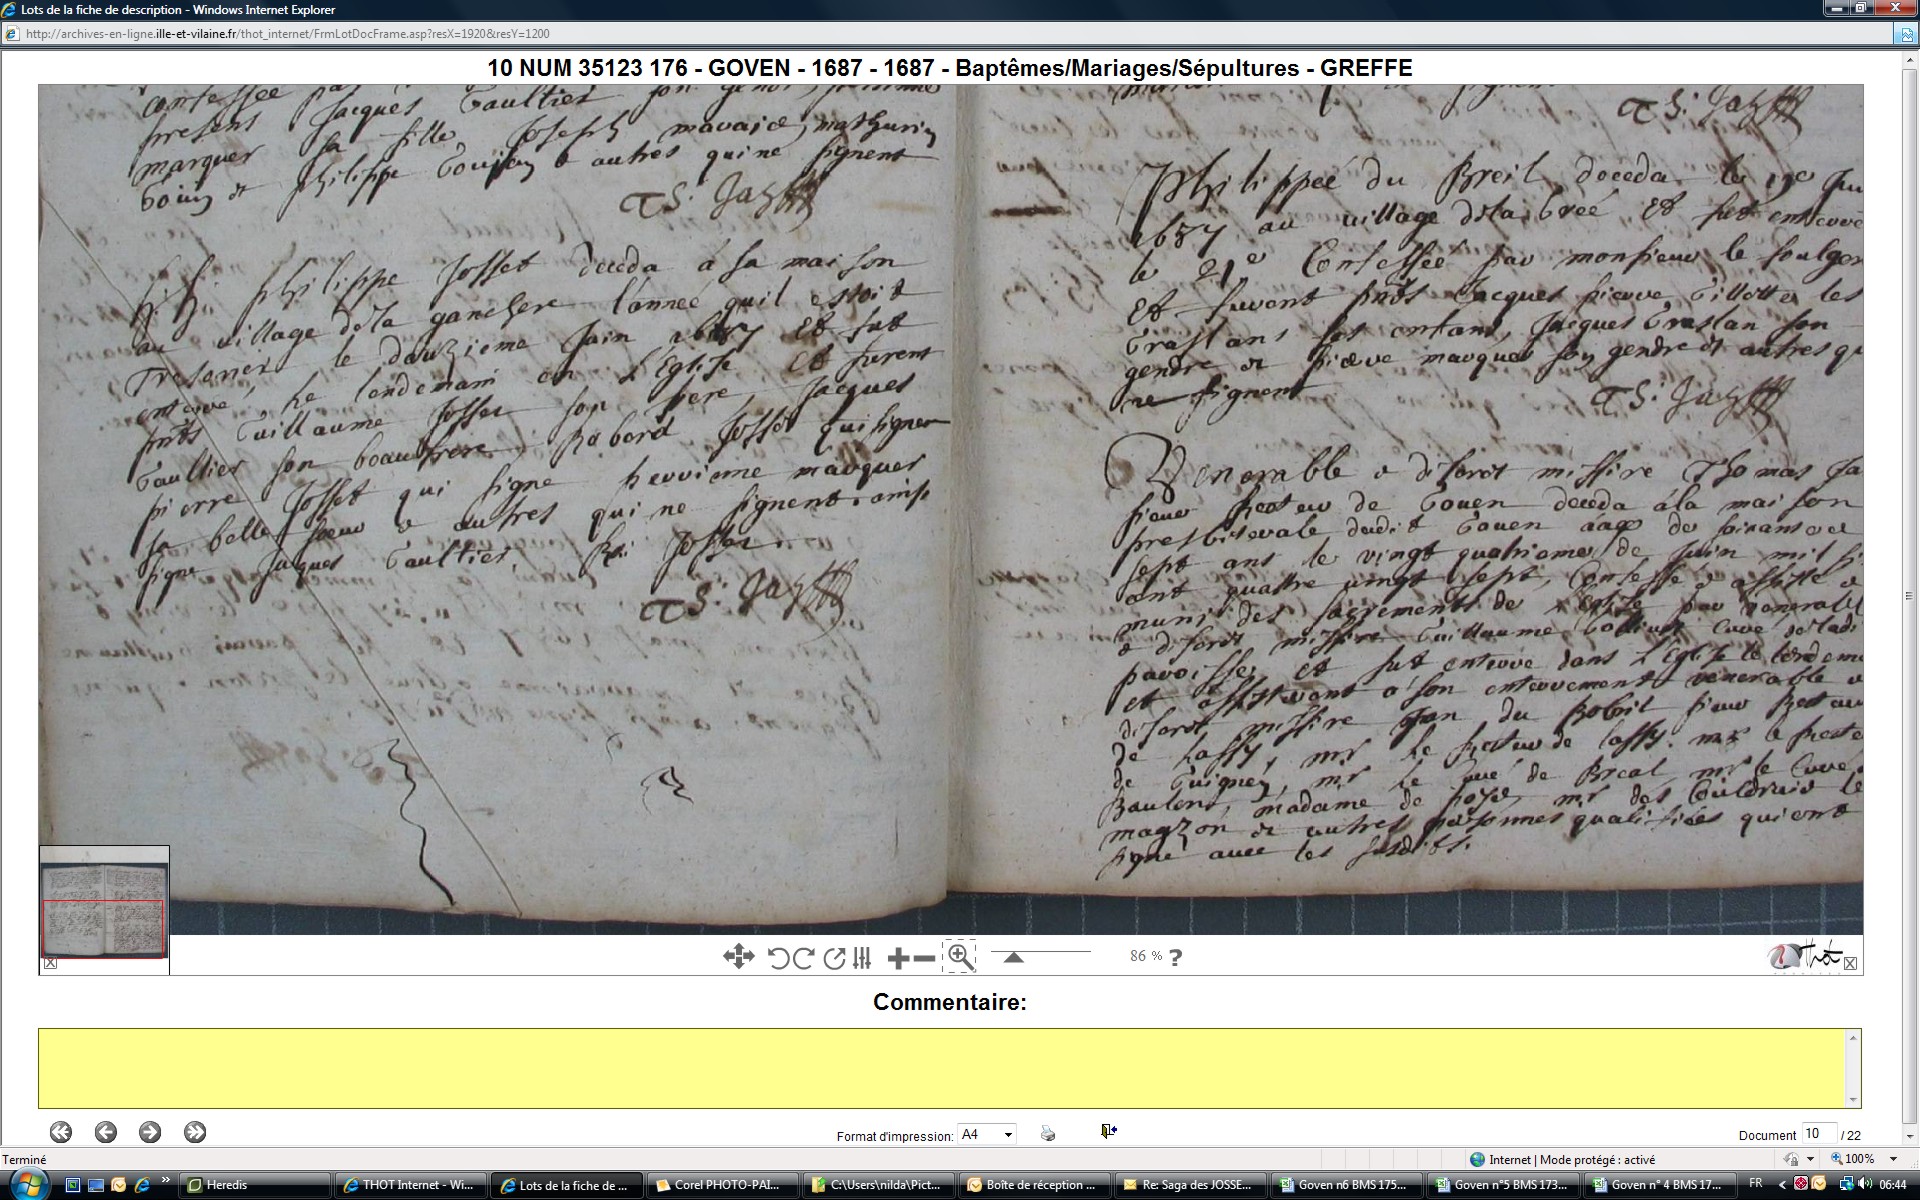 Lots de la fiche de description - Windows Internet Explorer
http://archives-en-ligne.ille-et-vilaine.fr/thot_internet/FrmLotDocFrame.asp?resX=1920&resY=1200
10 NUM 35123 176 - GOVEN - 1687 - 1687 - Baptêmes/Mariages/Sépultures - GREFFE
present Jacques Gaultier son
marquer sa fille Joseph mathurin
philippe & autres qui ne signent
philippe Josset deceda a sa maison
au village de la ganchere l'anneé quil estoit
Tresorier le douzieme Juin 1687 Et fut
enterré le lendemain en L'Eglise Et furent
pnts Guillaume Josset son pere, Jacques
Gaultier son beaufrere Josset qui signent
pierre Josset qui signe perrinne marquer
sa belle soeur & autres qui ne signent. ainsi
signe Jacques Gaultier, Josset.
Philippeé du Breil deceda le 19e Jui
1687 au village de la Et fut enterré
le 21e Confesseé par monsieur le
Et furent pnts Jacques pierre Gillette les
Graslans ses enfans, Jacques Graslan son
gendre et pierre marquer son gendre et autres qu
ne signent
Venerable & discret missire Thomas Ja
sieur Recteur de Goven deceda a la maison
presbiterale dudit Goven aagé de soixante et
sept ans le vingt quatrieme de Juin mil si
cent quattre vingt sept, Confessé & assisté &
muni des sacrements de L'Eglise par venerable
& discret missire Guillaume curé de ladi
paroisse, et fut enterré dans L'Eglise le lendema
et assisterent a son enterrement venerable &
discret missire Jan du sieur Recteur
de Lassy, mr Le Recteur de mr le
de Guignen, mr Le Curé de Breal, mr le Curé
Baulon, madame de mr des le
et autres personnes qualifiées qui ont
signé avec les susdits.
86 %
?
Thot
Commentaire:
Format d'impression: A4
Document 10 / 22
Terminé
Internet | Mode protégé : activé
100%
Heredis
THOT Internet - Wi...
Lots de la fiche de ...
Corel PHOTO-PAI...
C:\Users\nilda\Pict...
Boîte de réception ...
Re: Saga des JOSSE...
Goven n6 BMS 175...
Goven n°5 BMS 173...
Goven n° 4 BMS 17...
FR
06:44